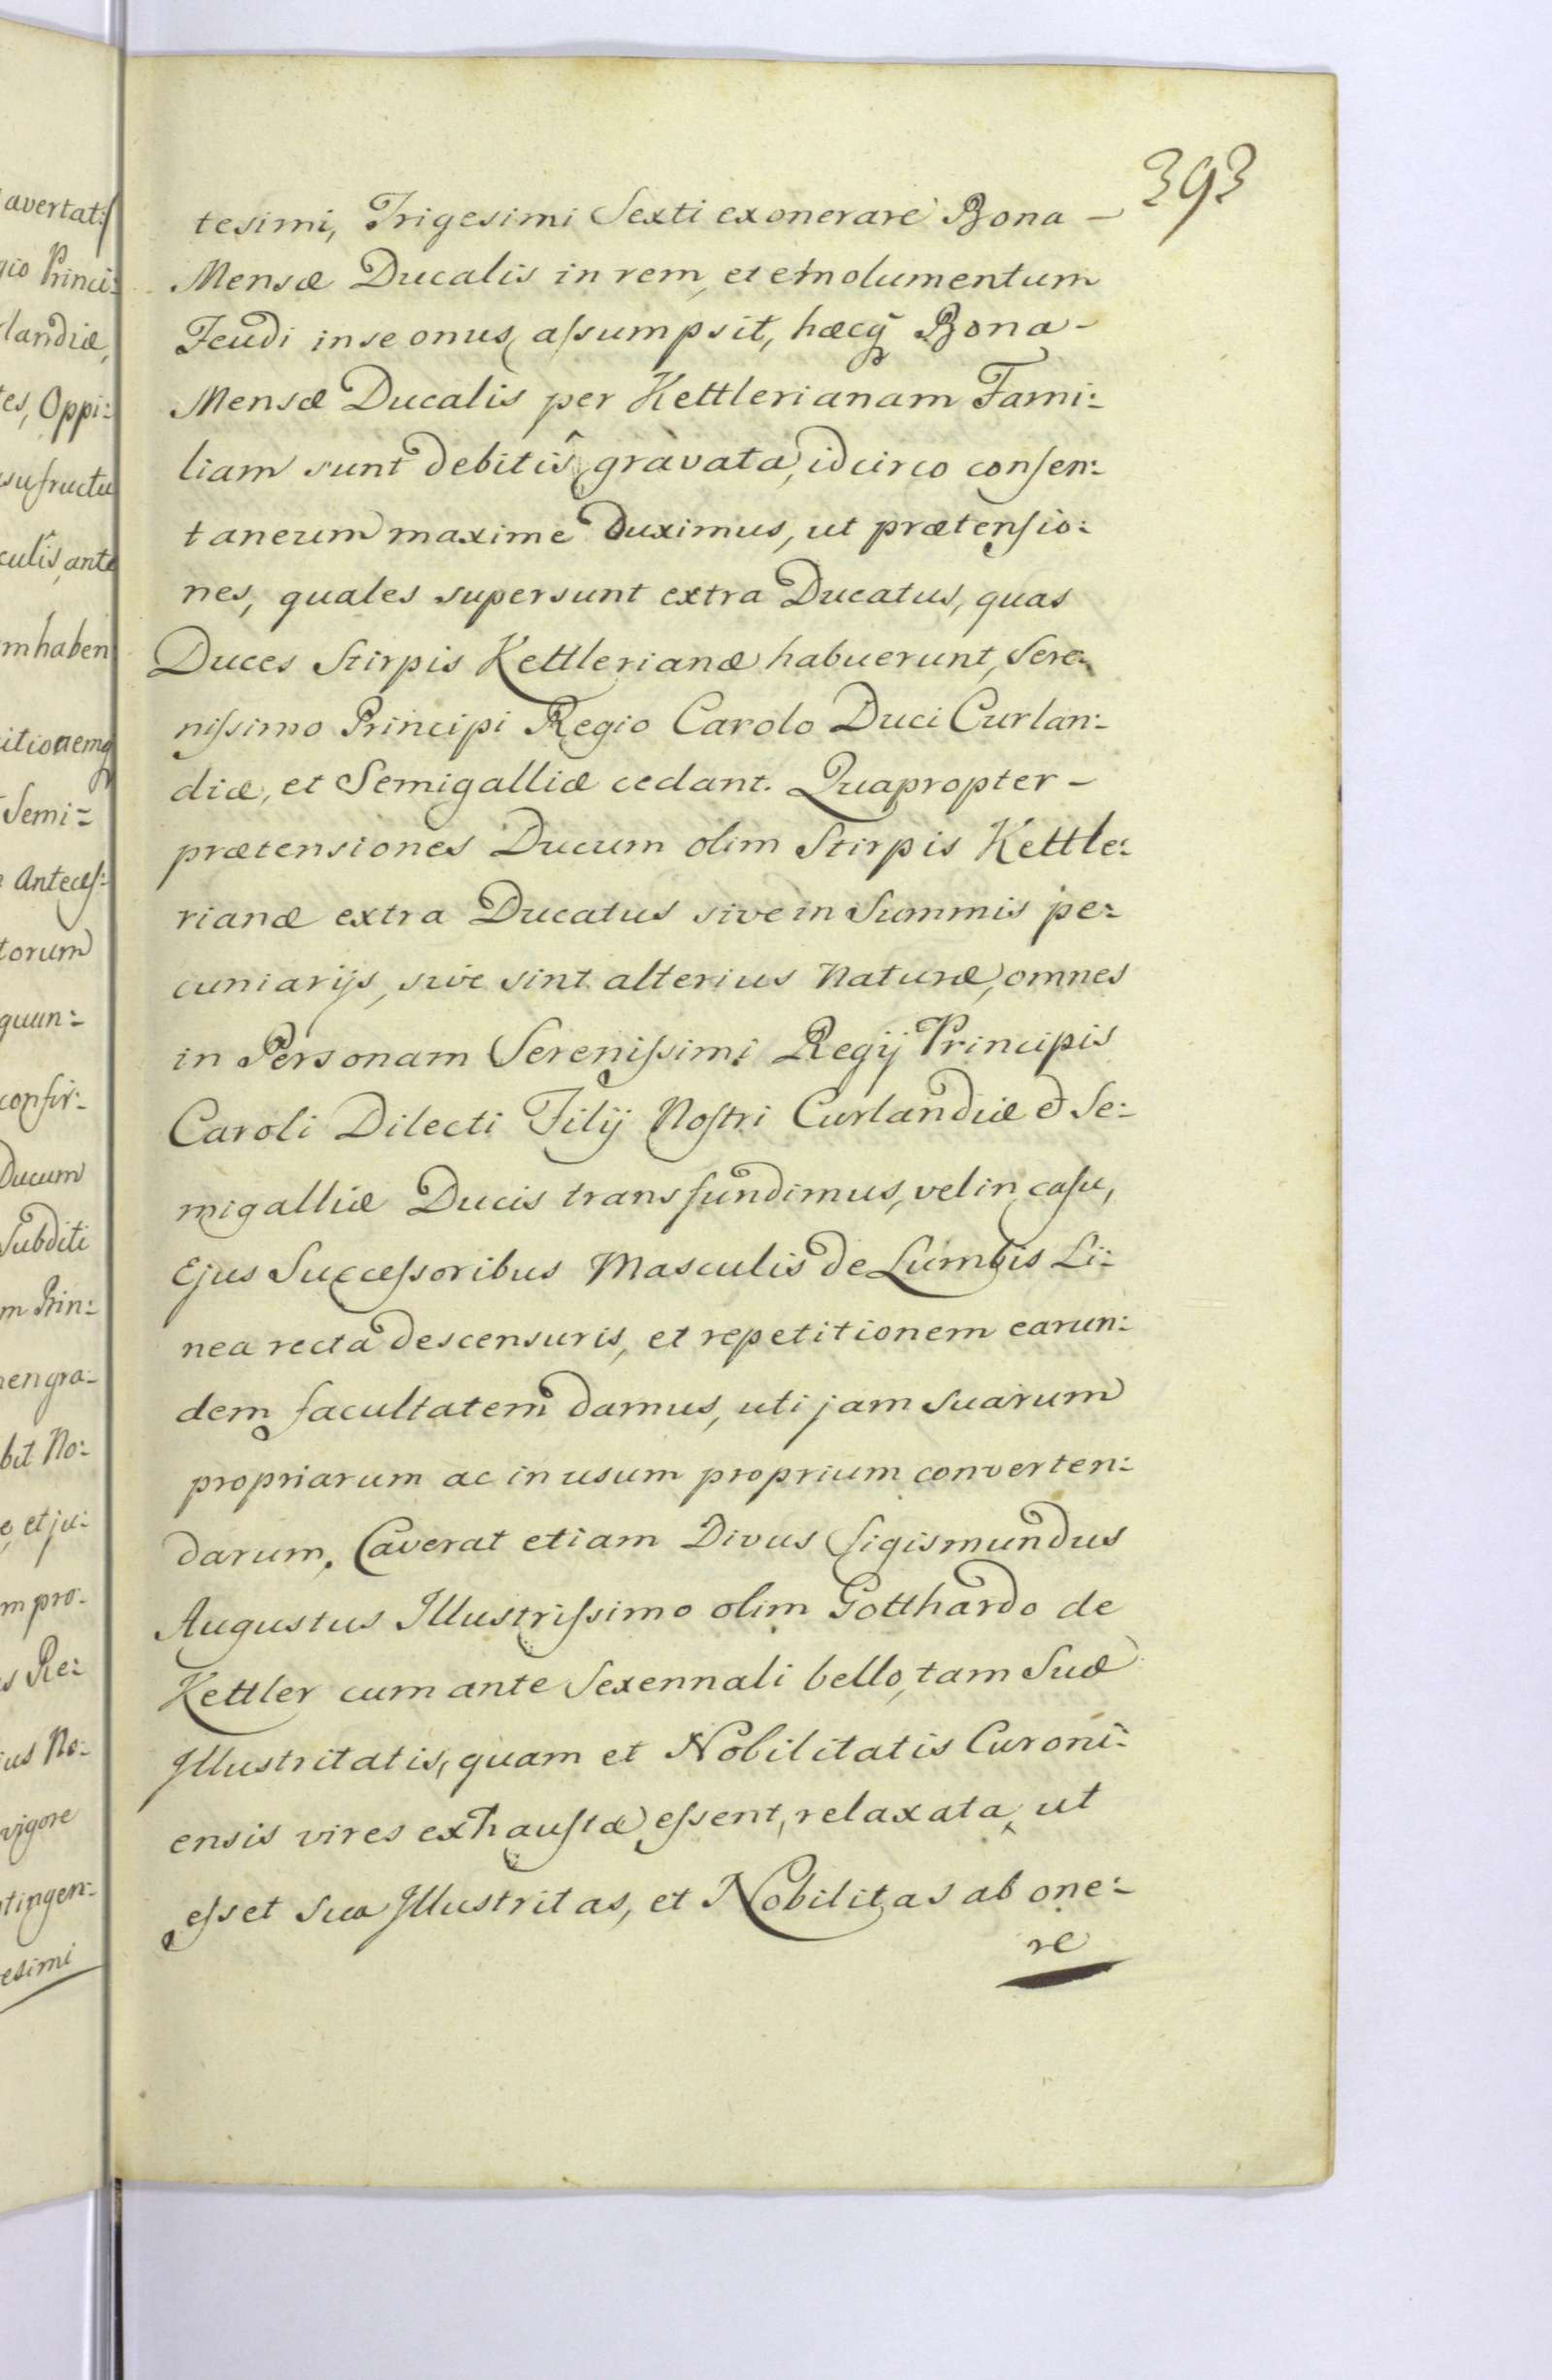 393
tesimi, Trigesimi Sexti exonerare Bona –
Mensæ Ducalis in rem, et emolumentum
Feudi in se onus assumpsit, hæcq̃ Bona –
Mensæ Ducalis per Kettlerianam Fami:
liam sunt debitîs gravata, idcirco consen:
taneum maxime duximus, ut prætensio:
nes, quales supersunt extra Ducatus, quas
Duces Stirpis Kettlerianæ habuerunt, Sere:
nissimo Principi Regio Carolo Duci Curlan:
diæ, et Semigalliæ cedant. Quapropter –
prætensiones Ducum olim Stirpis Kettle:
rianæ extra Ducatus sive in Summis pe:
cuniarijs, sive sint alterius Naturæ, omnes
in Personam Serenissimi Regij Principis
Caroli Dilecti Filij Nostri Curlandiæ et Se:
migalliæ Ducis transfundimus, vel in casu,
Ejus Successoribus Masculis de Lumbis Li:
nea recta descensuris, et repetitionem earun:
dem facultatem damus, uti jam suarum
propriarum ac in usum proprium converten:
darum. Caverat etiam Divus Sigismundus
Augustus Illustrissimo olim Gotthardo de
Kettler cum ante Sexennali bello, tam Suæ
Illustritatis, quam et Nobilitatis Curoni:
ensis vires exhaustæ essent, relaxata, ut
esset sua Illustritas, et Nobilitas ab one:
re
avertat:
gio Princi:
landiæ,
tes, Oppi:
sufructu
culîs, ante
m haben
itionemq
Semi:
Anteces:
torum
quun:
confir:
Ducum
Subditi
m Prin:
engra:
bit No:
e, et ju:
m pro:
s Re:
ius No:
vigore
tingen:
esimi